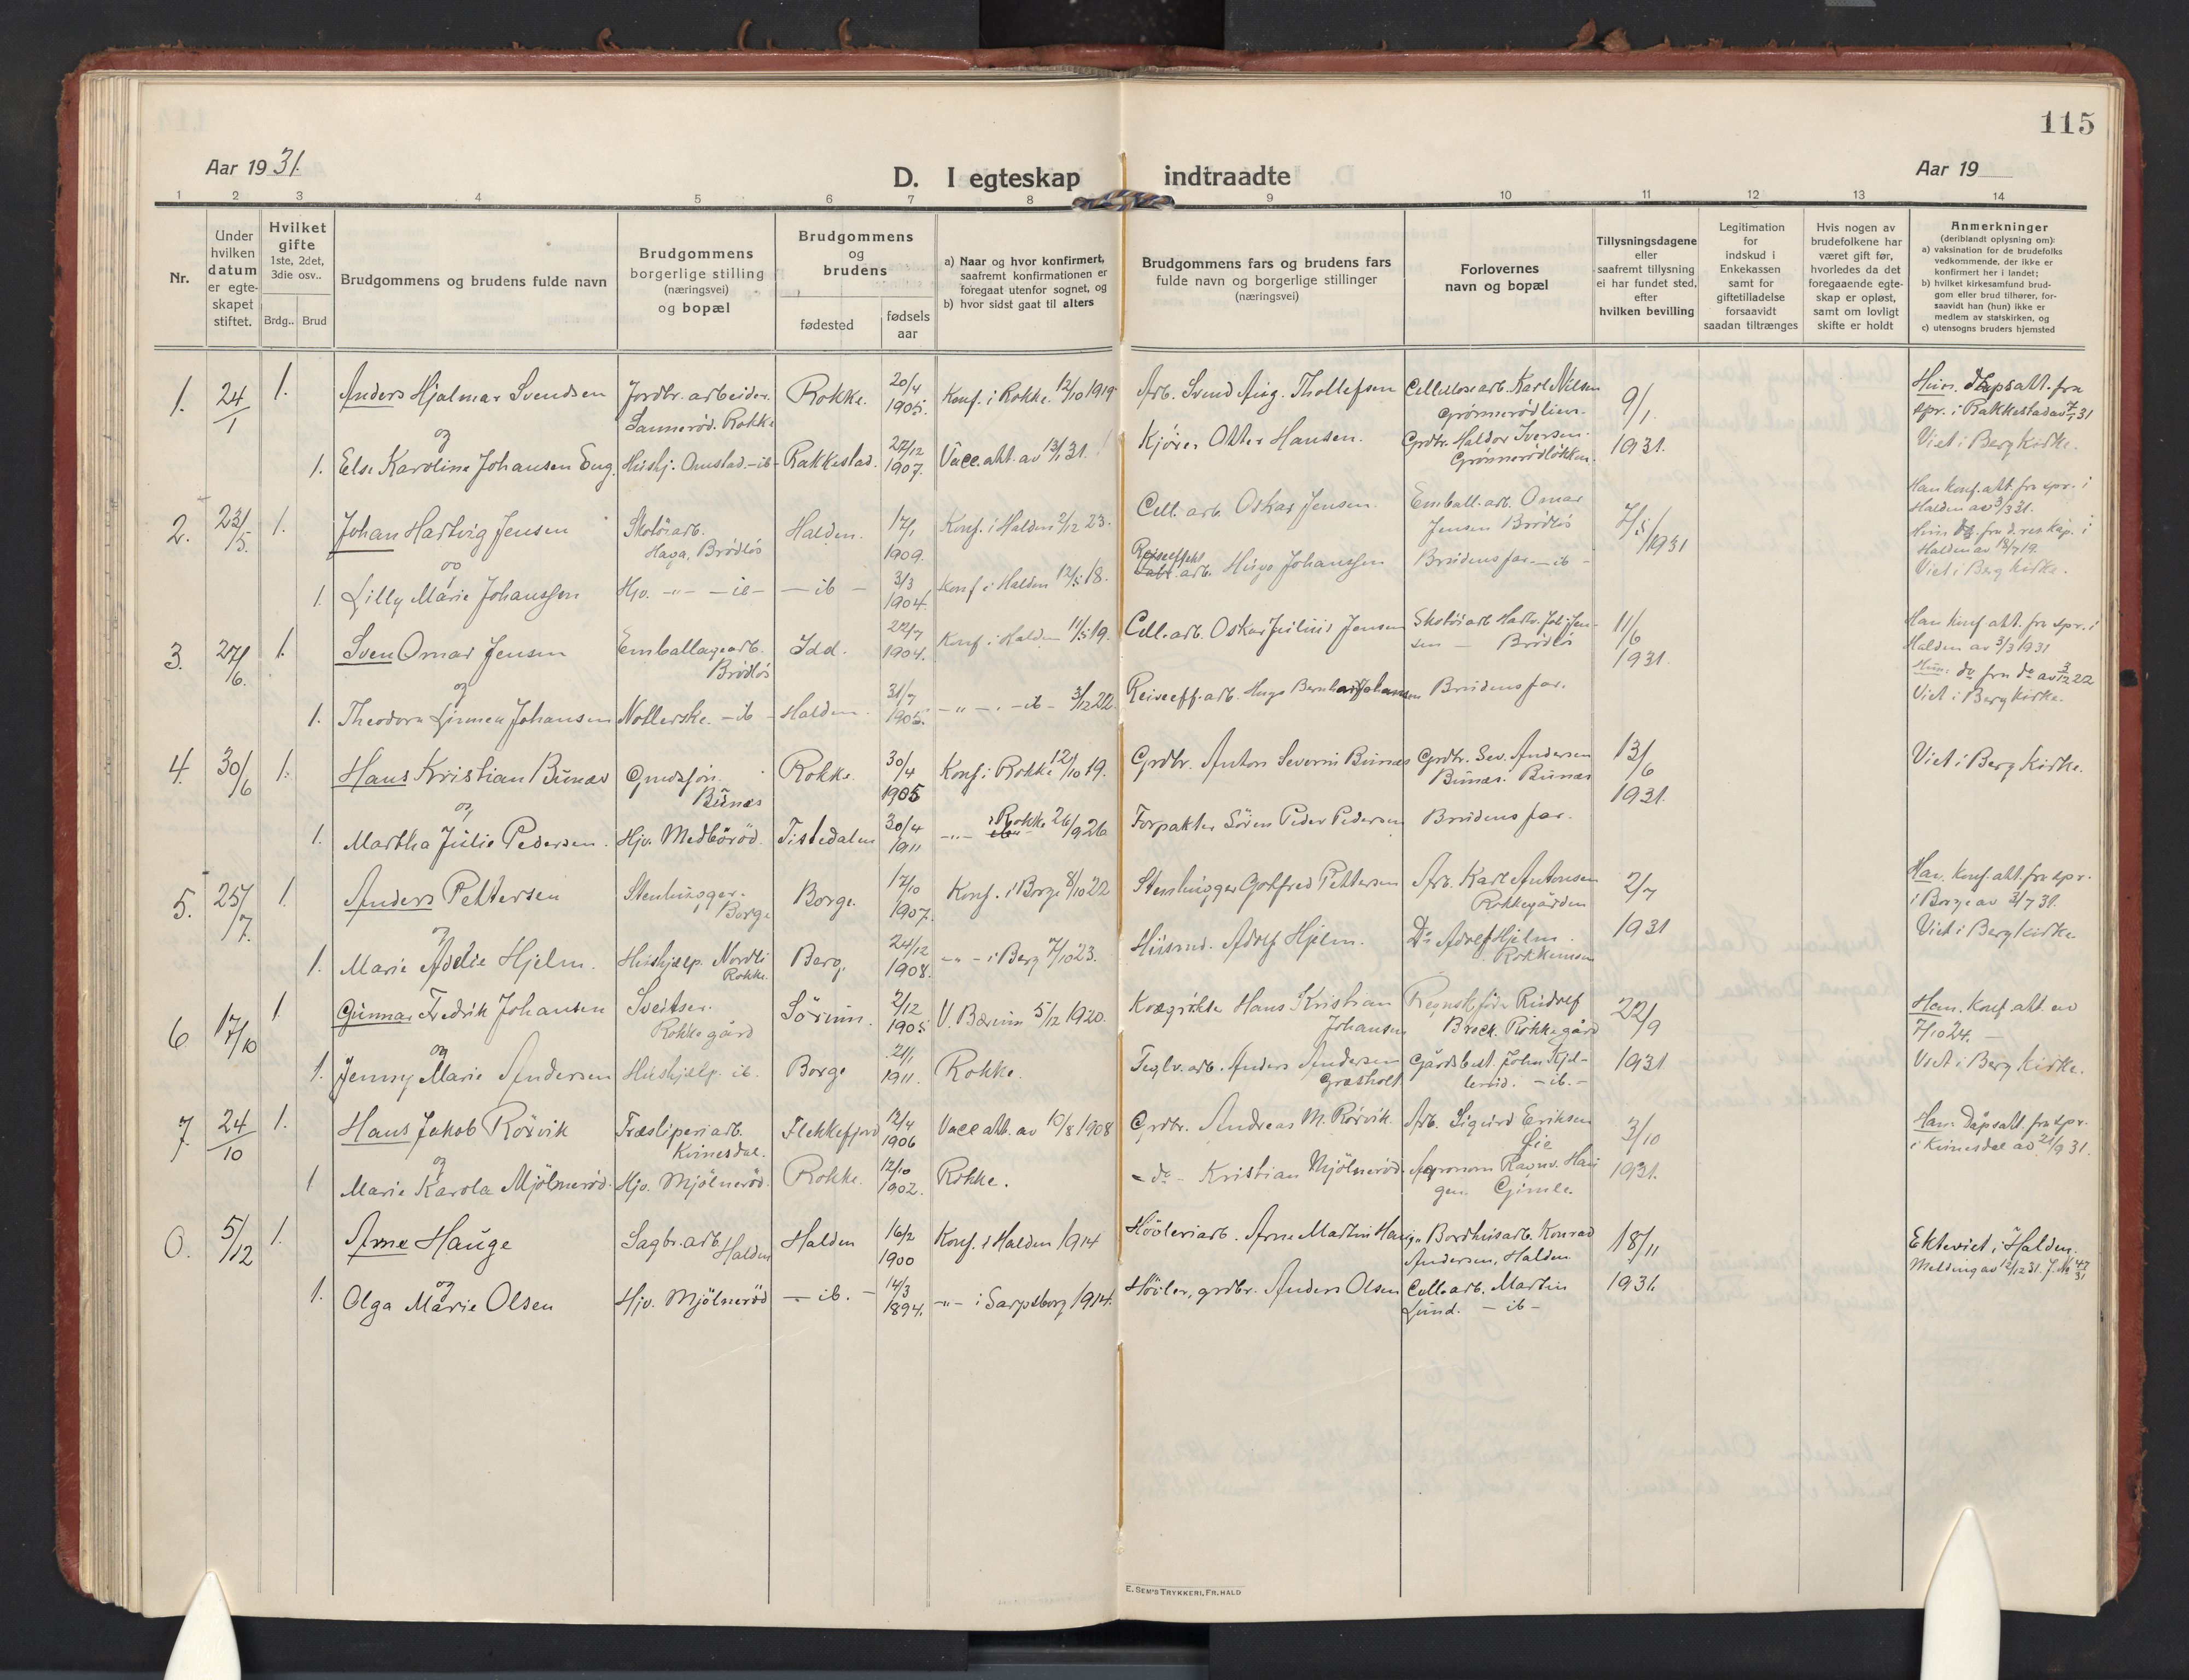 115
Aar 1931.
D. I egteskap indtraadte
Aar 19
1 2 3 4 5 6 7 8 9 10 11 12 13 14
Nr.
Under
hvilken
datum
er egte-
skapet
stiftet.
Hvilket
gifte
1ste, 2det,
3die osv..
Brdg.. Brud
Brudgommens og brudens fulde navn
Brudgommens
borgerlige stilling
(næringsvei)
og bopæl
Brudgommens
og
brudens
fødested
fødsels
aar
a) Naar og hvor konfirmert,
saafremt konfirmationen er
foregaat utenfor sognet, og
b) hvor sidst gaat til alters
Brudgommens fars og brudens fars
fulde navn og borgerlige stillinger
(næringsvei)
Forlovernes
navn og bopæl
Tillysningsdagene
eller
saafremt tillysning
ei har fundet sted,
efter
hvilken bevilling
Legitimation
for
indskud i
Enkekassen
samt for
giftetilladelse
forsaavidt
saadan tiltrænges
Hvis nogen av
brudefolkene har
været gift før,
hvorledes da det
foregaaende egte-
skap er opløst,
samt om lovligt
skifte er holdt
Anmerkninger
(deriblandt oplysning om):
a) vaksination for de brudefolks
vedkommende, der ikke er
konfirmert her i landet;
b) hvilket kirkesamfund brud-
gom eller brud tilhører, for-
saavidt han (hun) ikke er
medlem av statskirken, og
c) utensogns bruders hjemsted
1. 24/1 1. Anders Hjalmar Svendsen
Jordbr. arbeider.
Sannerød. Rokke
Rokke. 20/4 1905. Konf. i Rokke. 12/10 1919
Arb. Svend Aug. Thollefsen
Cellulosearb. Karl Nilsen
Grønnerødlien.
9/1 1931.
Hun. dåpsatt. fra
spr. i Rakkestad av 7/1 31
Viet i Berg Kirke.
og
1. Else Karoline Johansen Eng.
Hushj. Omstad. -ib-
Rakkestad. 27/12 1907. Vacc. att. av 13/1 31.
Kjører Otter Hansen.
Grdbr. Haldor Iversen.
Grønnerødløkken.
2. 23/5. 1. Johan Hartvig Jensen
Skotøiarb.
Haga, Brødløs
Halden. 17/1 1909. Konf. i Halden 2/12 23.
Cell. arb. Oskar Jensen.
Emball. arb. Omar
Jensen Brødløs
7/5 1931
Han konf. att. fra spr. i
Halden av 3/3 31.
Hun do. fra d. res. kap. i
Halden av 18/7 19.
Viet i Berg Kirke.
og
1. Lilly Marie Johanssen
Hjv. -"- -ib-
-ib- 3/3 1904. Konf. i Halden 12/5 18.
Reiseeffekt
arb. Hugo Johanssen
Brudens far. -ib-
3. 27/6. 1. Sven Omar Jensen
Emballagearb.
Brødløs
Idd. 22/7 1904. Konf. i Halden 11/5 19.
Cell. arb. Oskar Julius Jensen
Skotøiarb. Hartv. Joh. Jen-
sen - Brødløs
11/6 1931.
Han konf. att. fra spr. i
Halden av 3/3 1931
Hun: do fra do av 3/12 22
Viet i Berg Kirke.
og
1. Theodora Linnea Johansen
Notlerske. -ib-
Halden. 31/7 1905. -"- -ib- 3/12 22.
Reiseeff. arb. Hugo Bernhard Johansen
Brudens far.
4. 30/6 1. Hans Kristian Bunæs
Grdsfor.
Bunæs
Rokke. 30/4 1905 Konf. i Rokke 12/10 19.
Grdbr. Anton Severin Bunæs
Grdbr. Sev. Andersen
Bunæs. Bunæs
13/6 1931.
Viet i Berg Kirke.
og
1. Martha Julie Pedersen.
Hjv. Medbørød.
Tistedalen 30/4 1911 -"- i Rokke 26/9 26
Forpakter Søren Peder Pedersen
Brudens far.
5. 25/7. 1. Anders Pettersen
Stenhugger.
Borge
Borge. 17/10 1907. Konf. i Borge 8/10 22
Stenhugger Godfred Pettersen
Arb. Karl Antonsen
Rokkegården
2/7 1931
Han. Konf. att. fra spr.
i Borge av 3/7 31.
Viet i Berg Kirke
og
1. Marie Adelie Hjelm.
Hushjælp. Nordli
Rokke.
Berg. 24/12 1908. -"- i Berg 7/10 23.
Husmd. Adolf Hjelm.
Do Adolf Hjelm.
6. 17/10 1 Gunnar Fredrik Johansen
Sveitser.
Rokke gård
Sørum. 2/12 1905 V. Bærum 5/12 1920.
Kvægrøkter Hans Kristian
Johansen
Regnskfører Rudolf
Breck. Rokkegård
22/9 1931
Han. Konf. att. av
7/10 24. -
Viet i Berg Kirke.
og
1. Jenny Marie Andersen
Hushjælp. ib.
Borge 21/1 1911. Rokke.
Teglv. arb. Anders Andersen
Græsholt
Gårdsbest. John Kjøl-
lerød. -ib.-
7. 24/10 1. Hans Jakob Rørvik
Træsliperiarb.
Kvinesdal.
Flekkefjord 12/4 1906 Vacc att. av 10/8 1908
Grdbr. Andreas M. Rørvik.
Arb. Sigurd Eriksen
Øie
3/10 1931.
Han Dåpsatt. fra spr.
i Kvinesdal av 21/9 31.
og
1 Marie Karola Mjølnerød.
Hjv. Mjølnerød.
Rokke. 12/10 1902. Rokke.
-do- Kristian Mjølnerød.
Agronom Ragnv. Hau
gen. Gimle.
0. 5/12 1. Arne Hauge
Sagbr. arb.
Halden
Halden 16/2 1900 Konf. i Halden 1914
Høvleriarb. Arne Martin Hauge
Bordhusarb. Konrad
Andersen, Halden
18/11 1931.
Ekteviet i Halden.
Melding av 12/12 31. J. No 47/31
og
1. Olga Marie Olsen
Hjv. Mjølnerød
-ib.- 14/3 1894. -"- i Sarpsborg 1914.
Høvler, grdbr. Anders Olsen
Cell. arb. Martin
Lund. -ib-
E. SEM'S TRYKKERI, FR.HALD